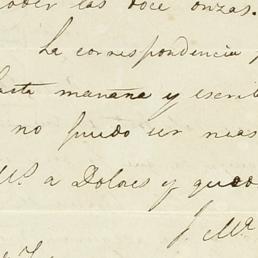 las doce onzas.
La correspondencia
mañana y escrib
no puedo ser mas
Ms. a Dolores y quedo
J. Ma.